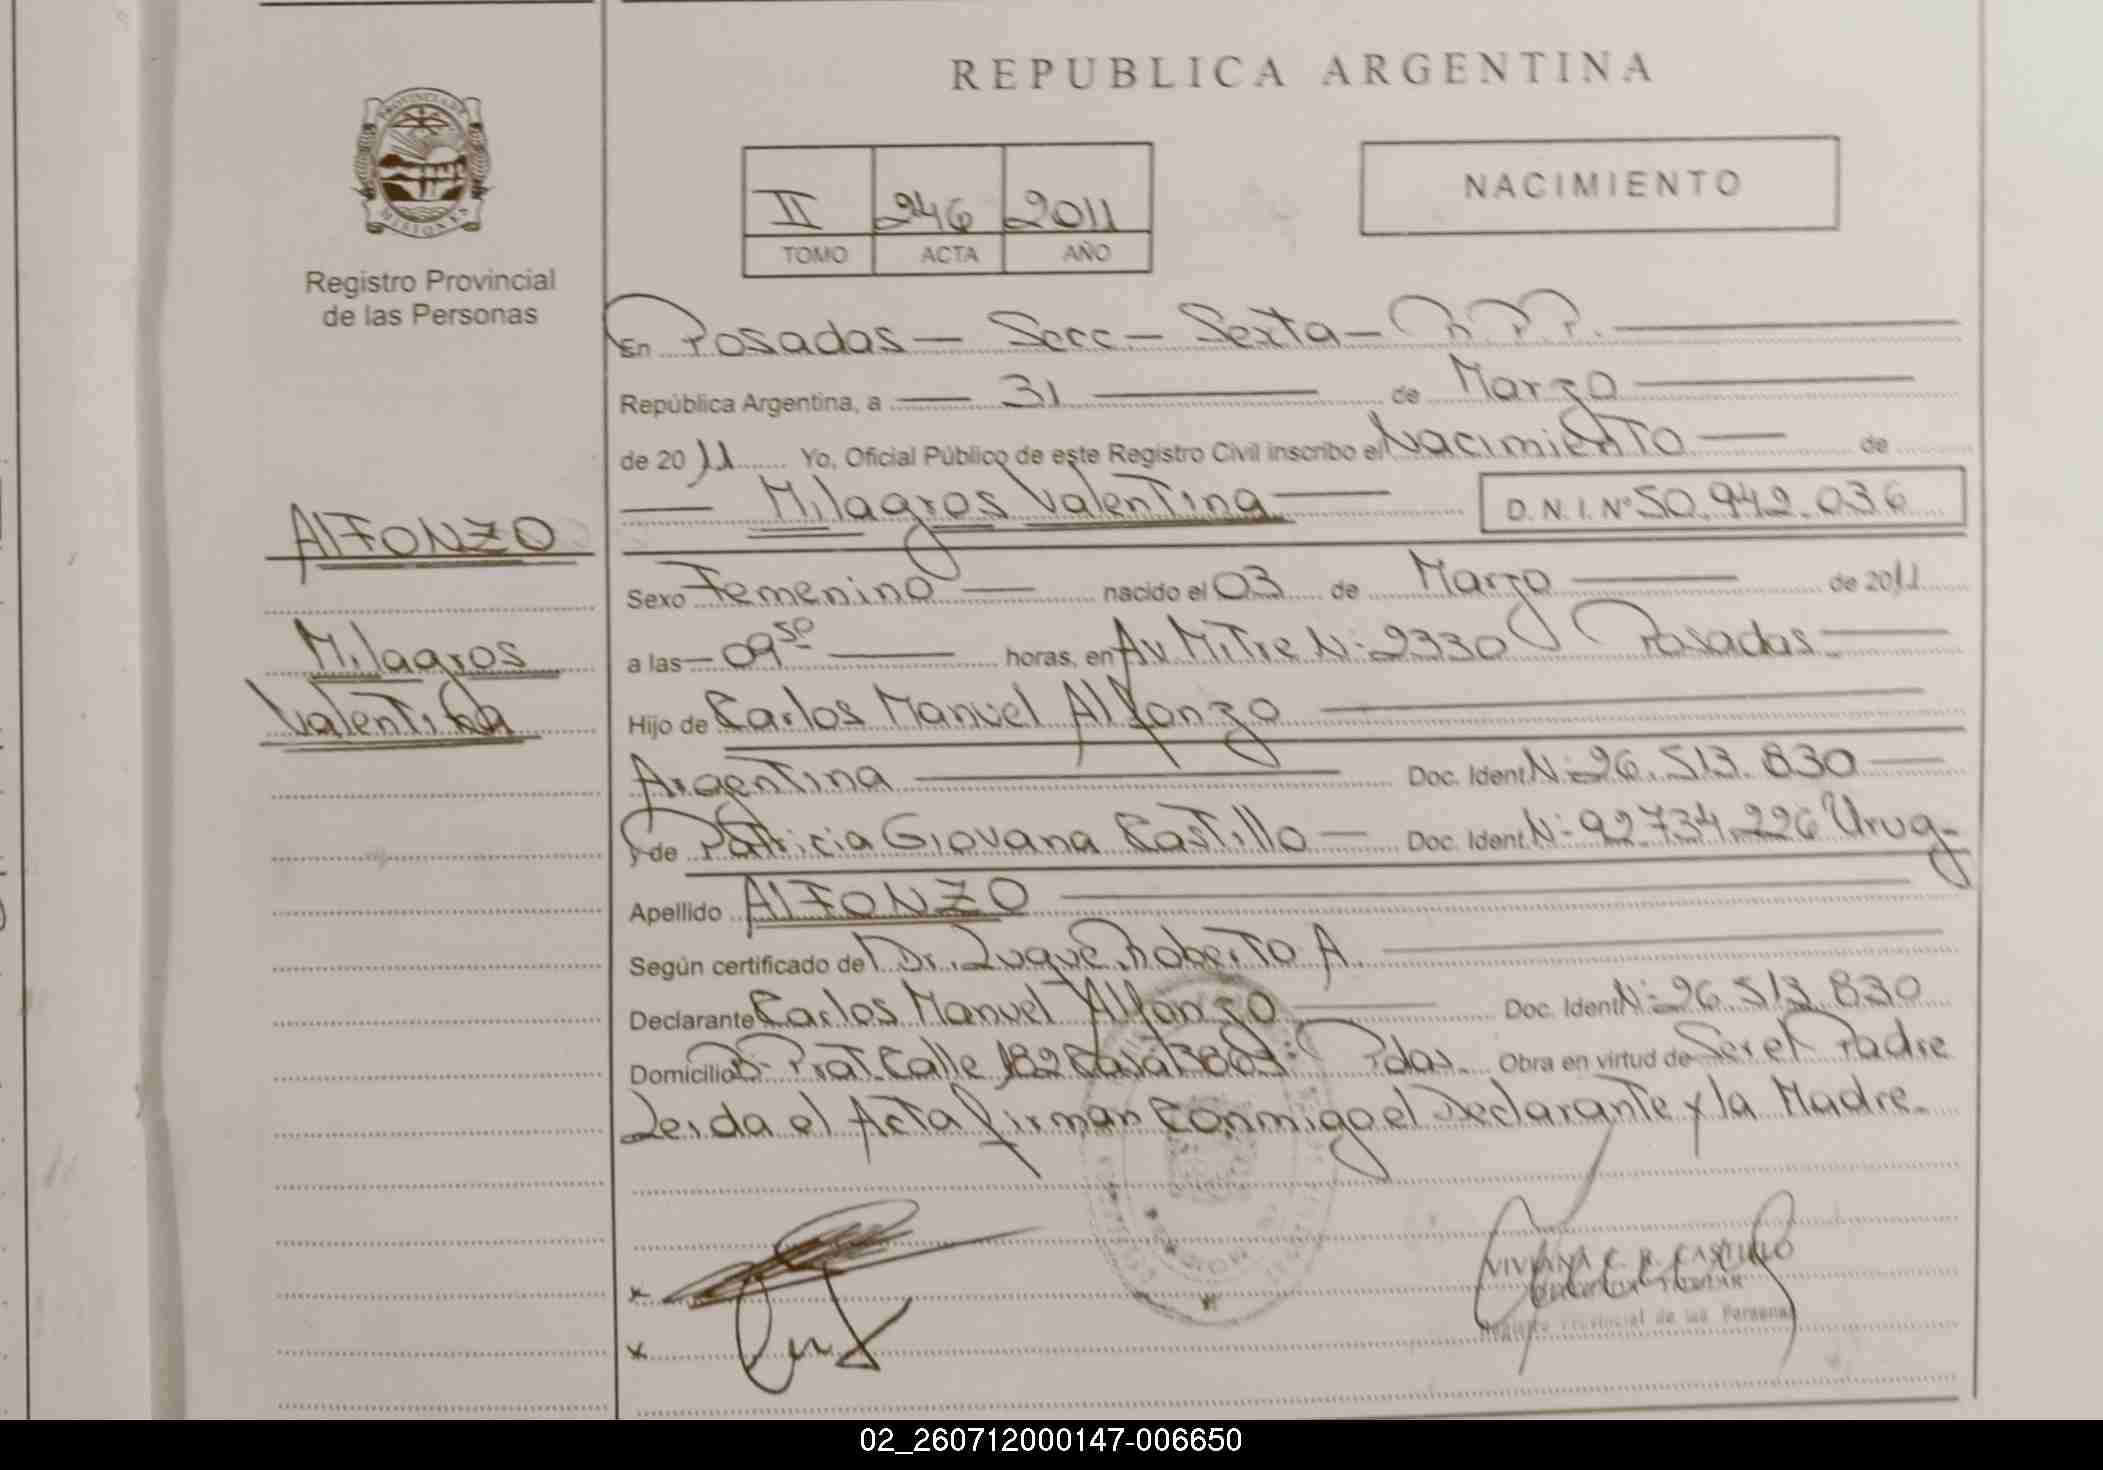 REPUBLICA ARGENTINA
PROVINCIA DE
MISIONES
Registro Provincial
de las Personas
II 246 2011
TOMO ACTA AÑO
NACIMIENTO
En Posadas — Secc — Sexta —
República Argentina, a — 31 — de Marzo —
de 20 11 Yo, Oficial Público de este Registro Civil inscribo el Nacimiento — de
— Milagros Valentina — D.N.I. Nº 50.942.036
ALFONZO
Milagros
Valentina
Sexo Femenino — nacido el 03 de Marzo — de 2011
a las — 09 50 — horas, en Av Mitre N: 2330 Posadas —
Hijo de Carlos Manuel Alfonzo —
Argentina — Doc. Ident N: 26.513.830 —
y de Patricia Giovana Castillo — Doc. Ident N: 92.734.226 Urug-
Apellido ALFONZO —
Según certificado del Dr. Luque Roberto A. —
Declarante Carlos Manuel Alfonzo — Doc. Ident N: 26.513.830
Domicilio Prat. Calle 182 Casa Pdas. Obra en virtud de Ser el Padre
Leida el Acta firman Conmigo el Declarante y la Madre.
x
x
VIVIANA C. R. CASTILLO
Registro Provincial de las Personas
02_260712000147-006650